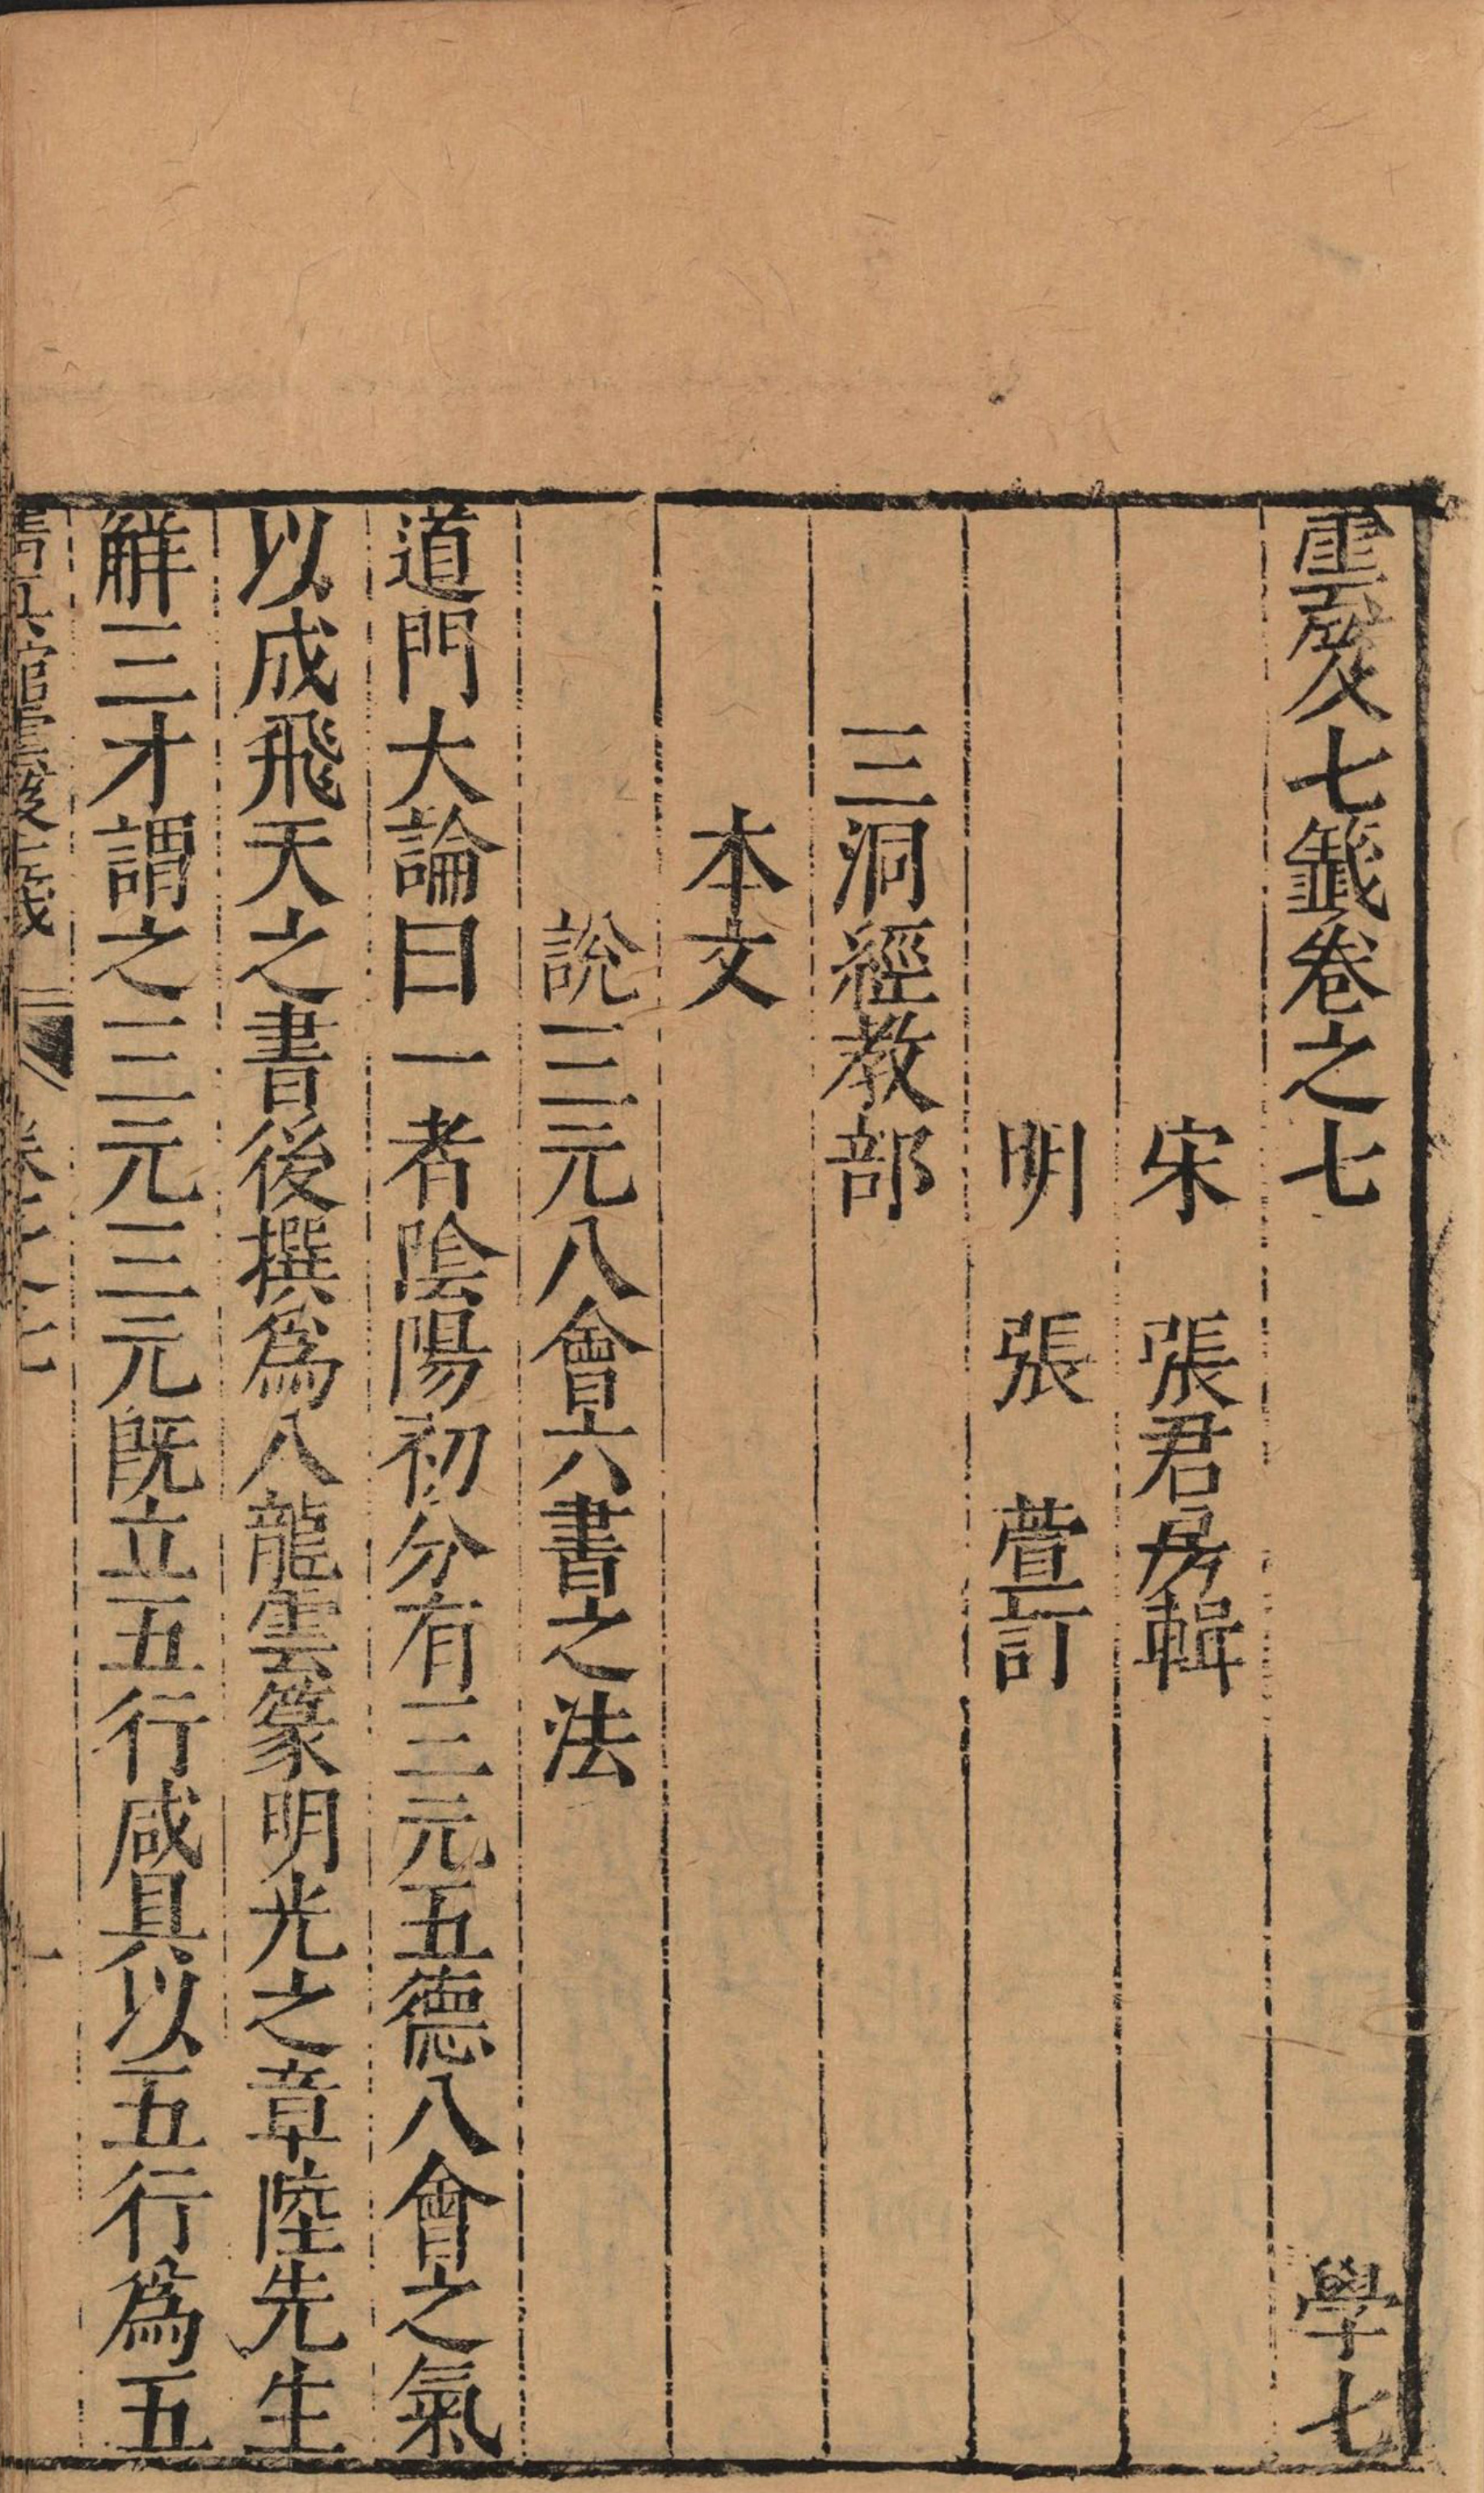 雲笈七籤卷之七　學七
宋　張君房輯
明　張　萱訂
三洞經教部
本文
說三元八會六書之法
道門大論曰一者陰陽初分有三元五德八會之氣
以成飛天之書後撰爲八龍雲篆明光之章陸先生
解三才謂之三元三元既立五行咸具以五行爲五
卷之七　一